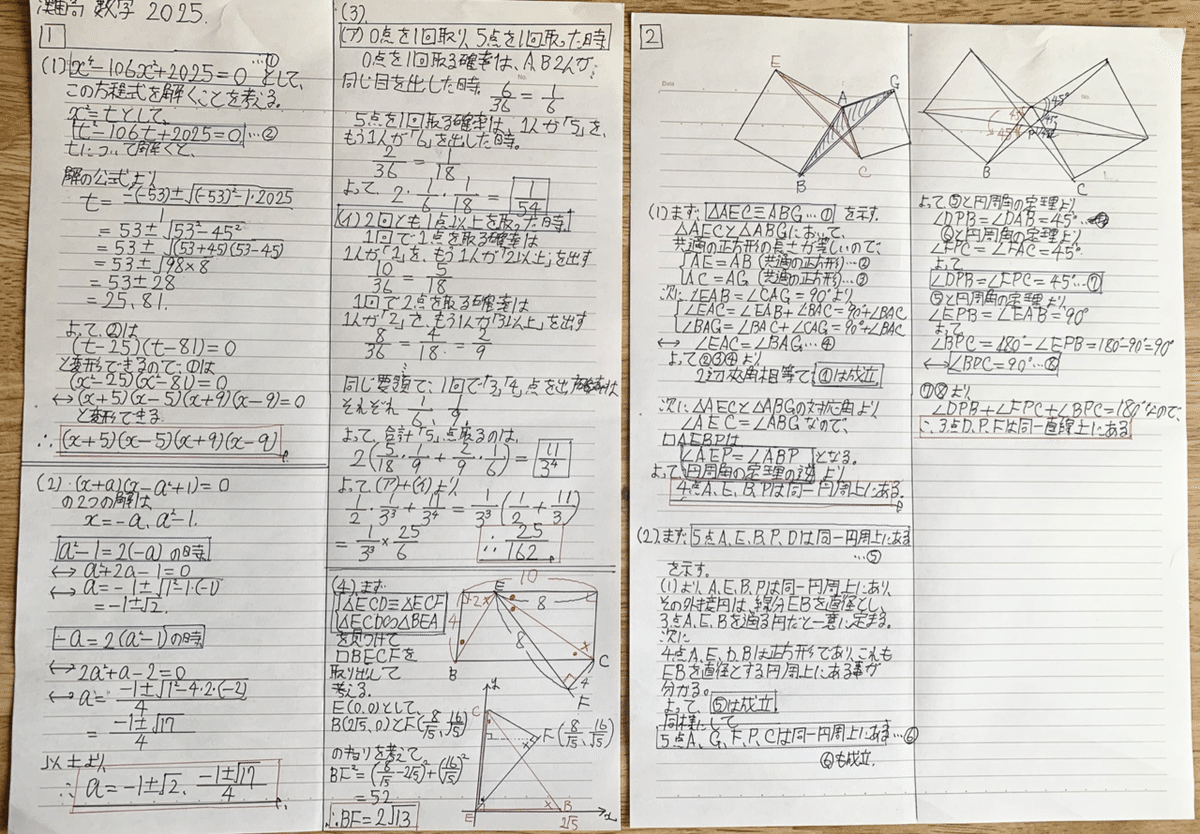 灘高 数学 2025.
1
(1) x⁴-106x²+2025=0 …① として、
この方程式を解くことを考える。
x²=tとして、
t²-106t+2025=0 …②
tについて解くと、
解の公式より
t=(-(-53)±√((-53)²-1・2025))/1
=53±√(53²-45²)
=53±√((53+45)(53-45))
=53±√(98×8)
=53±28
=25、81.
よって、②は
(t-25)(t-81)=0
と変形できるので、①は
(x²-25)(x²-81)=0
↔(x+5)(x-5)(x+9)(x-9)=0
と変形できる
∴(x+5)(x-5)(x+9)(x-9)
(2)・(x+a)(x-a²+1)=0
の2つの解は
x=-a、a²-1.
a²-1=2(-a) の時
↔a²+2a-1=0
↔a=-1±√(1²-1・(-1))
=-1±√2.
-a=2(a²-1)の時
↔2a²+a-2=0
↔a=(-1±√(1²-4・2・(-2)))/4
=(-1±√17)/4
以上より
∴a=-1±√2、(-1±√17)/4
(3).
(ア)0点を1回取り、5点を1回取った時
0点を1回取る確率は、A,B2人が
同じ目を出した時。6/36=1/6
5点を1回取る確率は 1人が「5」を、
もう1人が「6」を出した時。
2/36=1/18
よって、2・1/6・1/18=1/54
(イ)2回とも1点以上を取った時
1回で1点を取る確率は
1人が「1」を、もう1人が「2以上」を出す
10/36=5/18
1回で2点を取る確率は
1人が「2」で、もう1人が「3以上」を出す
8/36=4/18=2/9
同じ要領で、1回で「3」「4」点を出す確率は
それぞれ 1/6、1/9
よって、合計「5」点取るのは、
2(5/18・1/9+2/9・1/6)=11/3⁴
よって(ア)+(イ)より
1/2・1/3³+11/3⁴=1/3³(1/2+11/3)
=1/3³×25/6 ∴25/162
(4).まず
△ECD≡△ECF
△ECD∽△BEA
を見つけて
□BECFを
取り出して
考える。
E(0,0)として、
B(2√5,0)とF(8/√5、16/√5)
のキョリを考えて、
BF²=(8/√5-2√5)²+(16/√5)²
=52
∴BF=2√13
10
E
2
8
4
8
B
C
4
F
y
C
F(8/√5、16/√5)
E
B
x
2√5
2
E
A
G
B
C
(1)まず △AEC≡ABG…① を示す。
△AECと△ABGにおいて、
共通の正方形の長さが等しいので、
AE=AB(共通の正方形)…②
AC=AG(共通の正方形)…③
次に∠EAB=∠CAG=90°より
∠EAC=∠EAB+∠BAC=90°+∠BAC
∠BAG=∠BAC+∠CAG=90°+∠BAC
↔ ∠EAC=∠BAG…④
よって②③④より
2辺夾角相等で、①は成立
次に△AECと△ABGの対応角より
∠AEC=∠ABGなので、
□AEBPは
∠AEP=∠ABP となる。
よって、円周角の定理の逆より
4点A、E、B、Pは同一円周上にある。
(2).まず 5点A、E、B、P、Dは同一円周上にある
…⑤
を示す。
(1)より A、E、B、Pは同一円周上にあり、
その外接円は、線分EBを直径とし、
3点A、E、Bを通る円だと一意に定まる。
次に
4点A、E、D、Bは正方形であり、これも
EBを直径とする円周上にある事が
分かる。
よって、⑤は成立
同様にして
5点A、G、F、P、Cは同一円周上にある…⑥
⑥も成立.
45°
45
45°
45°
B
P
C
よって⑤と円周角の定理より
∠DPB=∠DAB=45°
⑥と円周角の定理より
∠FPC=∠FAC=45°
よって
∠DPB=∠FPC=45°…⑦
⑤と円周角の定理より、
∠EPB=∠EAB=90°
よって
∠BPC=180°-∠EPB=180°-90°=90°
↔∠BPC=90°…⑧
⑦⑧より
∠DPB+∠FPC+∠BPC=180°なので、
∴3点D、P、Fは同一直線上にある